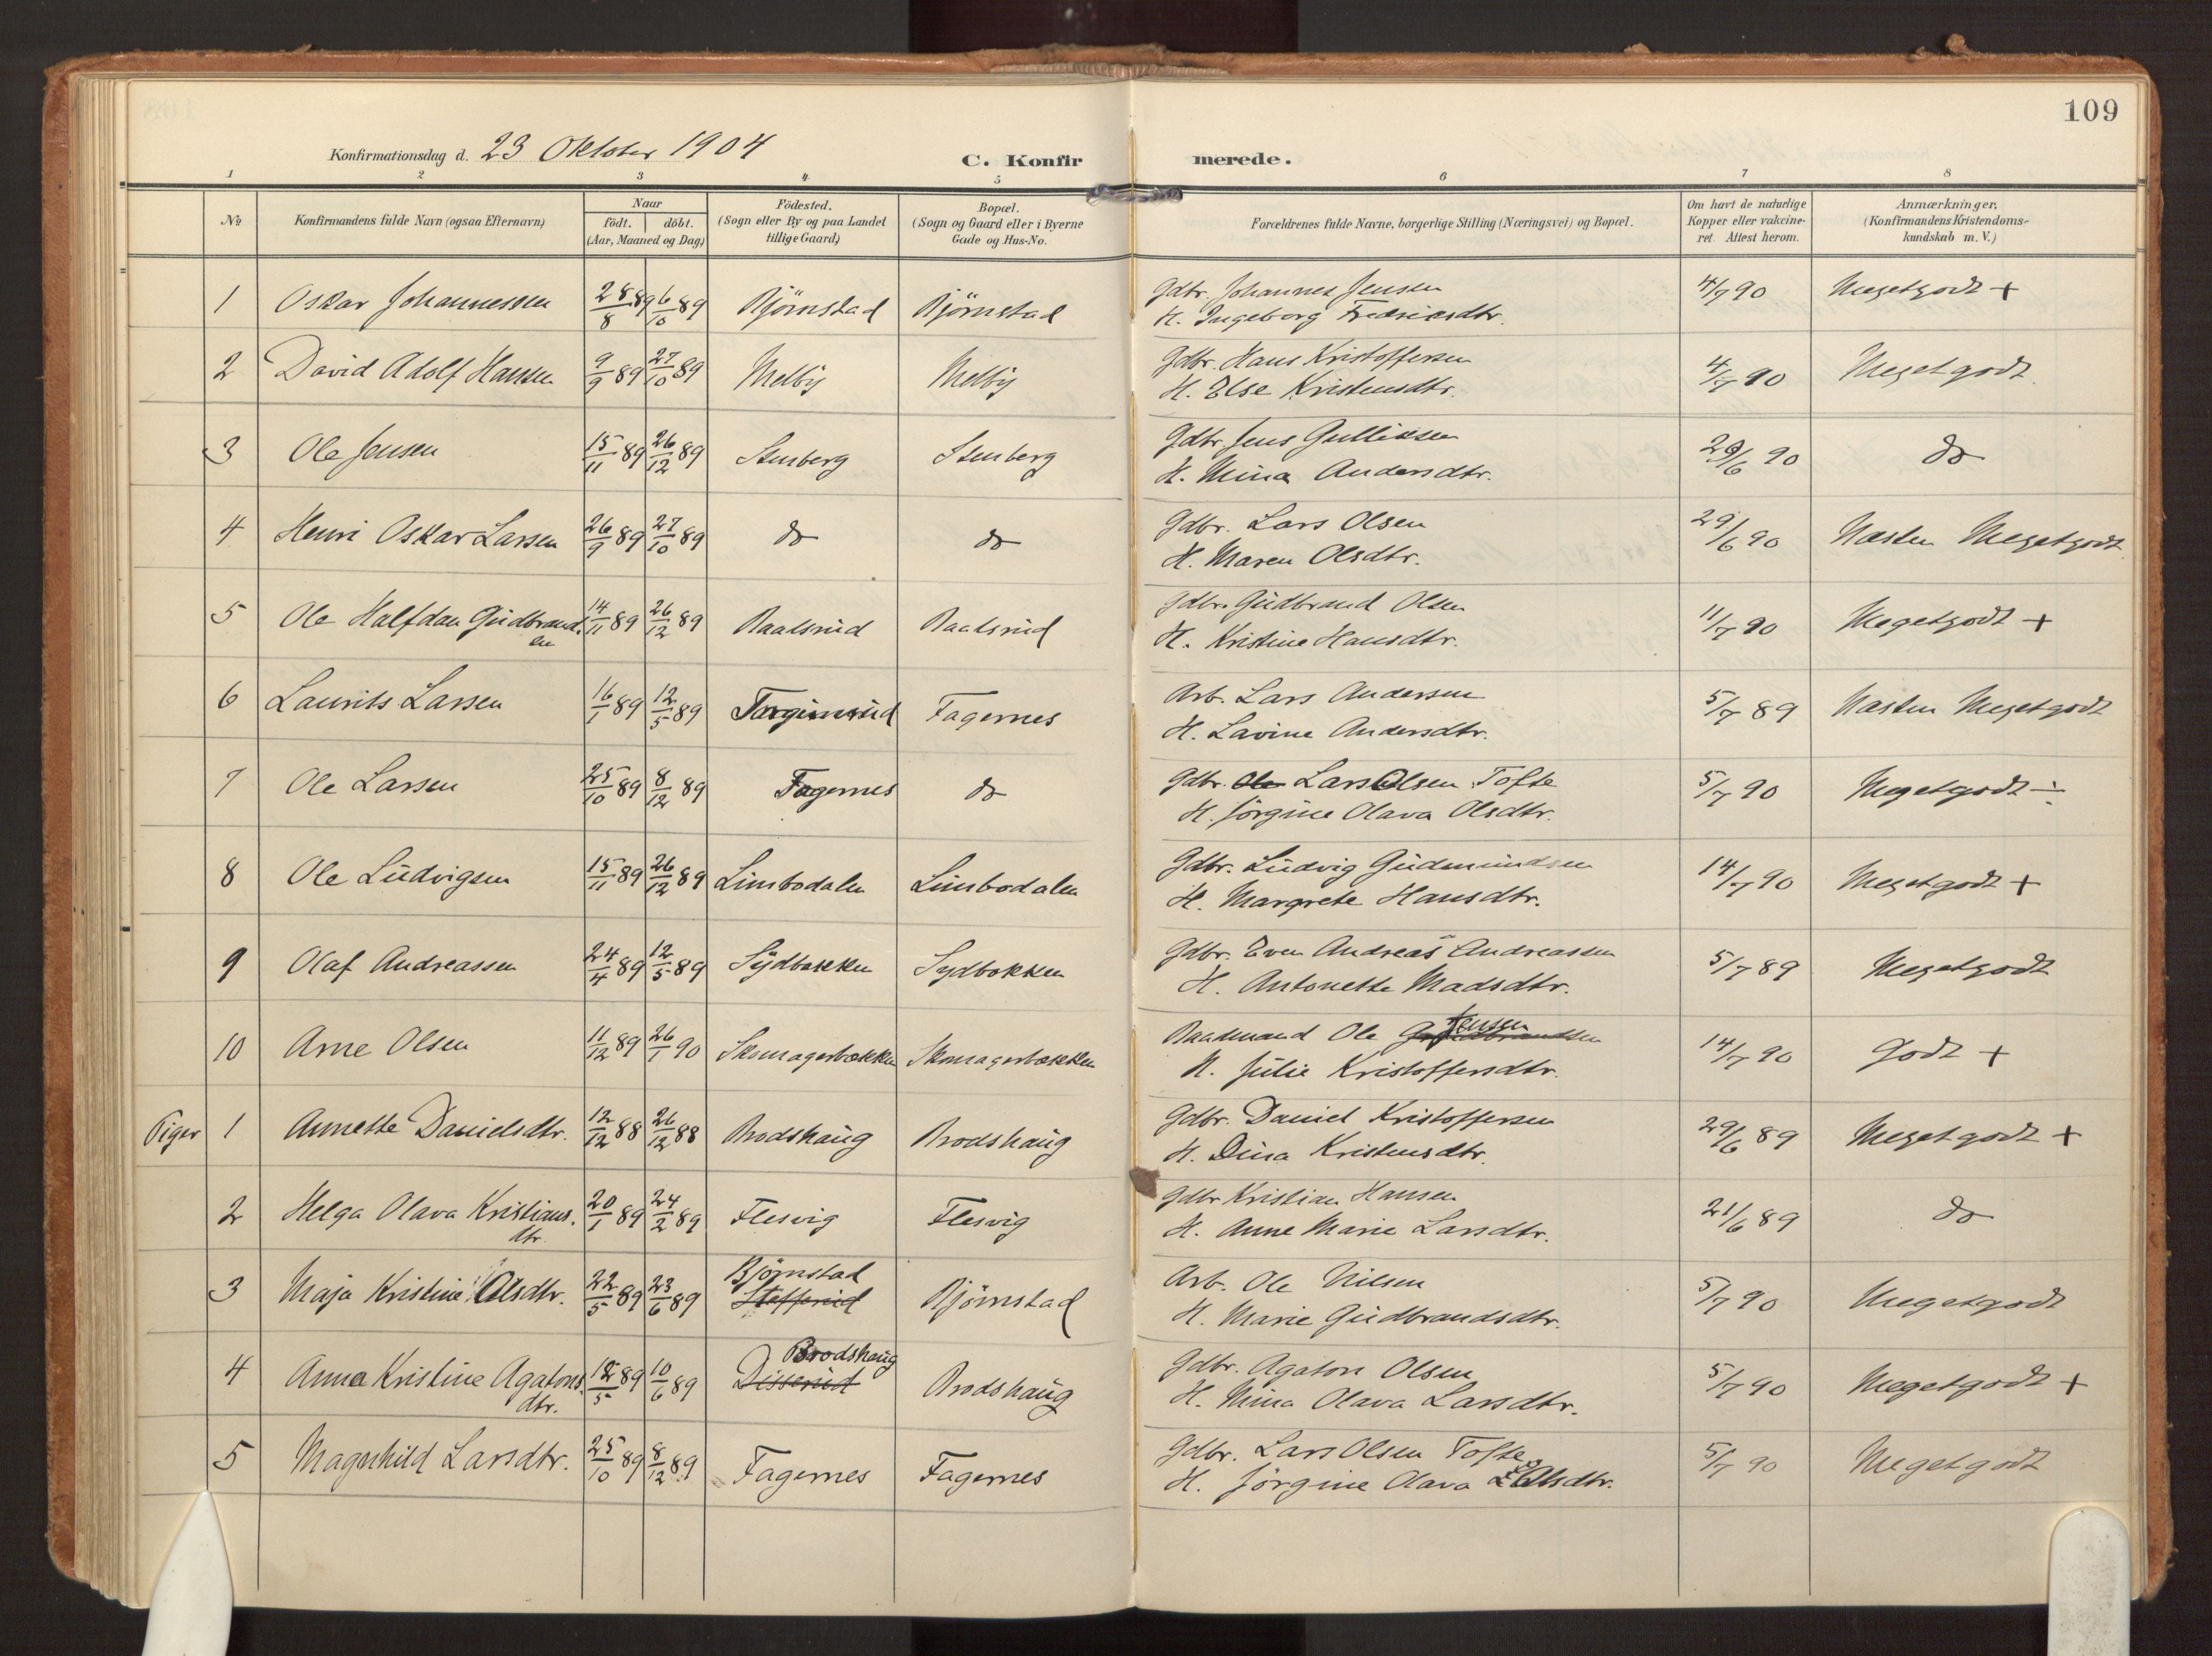 109
Konfirmationsdag d. 23 Oktober 1904
C. Konfir merede.
1 2 3 4 5 6 7 8
No.
Konfirmandens fulde Navn (ogsaa Efternavn)
Naar
födt. döbt.
(Aar, Maaned og Dag)
Födested.
(Sogn eller By og paa Landet
tillige Gaard)
Bopæl.
(Sogn og Gaard eller i Byerne
Gade og Hus-No.
Forældrenes fulde Navne, borgerlige Stilling (Næringsvei) og Bopæl.
Om havt de naturlige
Kopper eller vakcine-
ret. Attest herom.
Anmærkninger.
(Konfirmandens Kristendoms-
kundskab m. V.)
1 Oskar Johannessen 28/8 89 6/10 89 Björnstad Björnstad Gdbr. Johannes Jensen 4/7 90 Megetgodt +
H. Ingeborg Fredriksdtr.
2 David Adolf Hansen 9/9 89 27/10 89 Melby Melby Gdbr. Hans Kristoffersen 4/7 90 Megetgodt
H. Else Kristensdtr.
3 Ole Jensen 15/11 89 26/12 89 Stenberg Stenberg Gdbr. Jens Gulliksen 29/6 90 do
H. Mina Andersdtr.
4 Henri Oskar Larsen 26/9 89 27/10 89 do do Gdbr. Lars Olsen 29/6 90 Næsten Megetgodt
H. Maren Olsdtr.
5 Ole Halfdan Gudbrand. 14/11 89 26/12 89 Raalsrud Raalsrud Gdbr. Gudbrand Olsen 11/7 90 Megetgodt +
sen H. Kristine Hansdtr.
6 Laurits Larsen 16/1 89 12/5 89 Torgimsrud Fagernes Arb. Lars Andersen 5/7 89 Næsten Megetgodt
H. Lavine Andersdtr.
7 Ole Larsen 25/10 89 8/12 89 Fagernes do Gdbr. Ole Lars Olsen Tofte 5/7 90 Megetgodt ÷
H. Jörgine Olava Olsdtr.
8 Ole Ludvigsen 15/11 89 26/12 89 Linsbodalen Linsbodalen Gdbr. Ludvig Gudmundsen 14/7 90 Megetgodt +
H. Margrete Hansdtr.
9 Olaf Andreassen 24/4 89 12/5 89 Sydbakken Sydbakken Gdbr. Even Andreas Andreassen 5/7 89 Megetgodt
H. Antonette Madsdtr.
10 Arne Olsen 11/12 89 26/1 90 Skomagerbakken Skomagerbakken Baadmand Ole Gudbrandsen Jensen 14/7 90 Godt +
H. Julie Kristoffersdtr.
Piger 1 Annette Danielsdtr. 12/12 88 26/12 88 Brodshaug Brodshaug Gdbr. Daniel Kristoffersen 29/6 89 Megetgodt +
H. Dina Kristensdtr.
2 Helga Olava Kristians. 20/1 89 24/2 89 Flesvig Flesvig Gdbr Kristian Hansen 21/6 89 do
dtr H. Anne Marie Larsdtr.
3 Maja Kristine Olsdtr. 22/5 89 23/6 89 Björnstad Steffenrud Björnstad Arb. Ole Nilsen 5/7 90 Megetgodt
H. Marie Gudbrandsdtr.
4 Anna Kristine Agatons. 12/5 89 10/6 89 Brodshaug Disserud Brodshaug Gdbr. Agaton Olsen 5/7 90 Megetgodt +
dtr. H. Mina Olava Larsdtr.
5 Magnhild Larsdtr. 25/10 89 8/12 89 Fagernes Fagernes Gdbr. Lars Olsen Tofte 5/7 90 Megetgodt
H. Jörgine Olava Olsdtr.